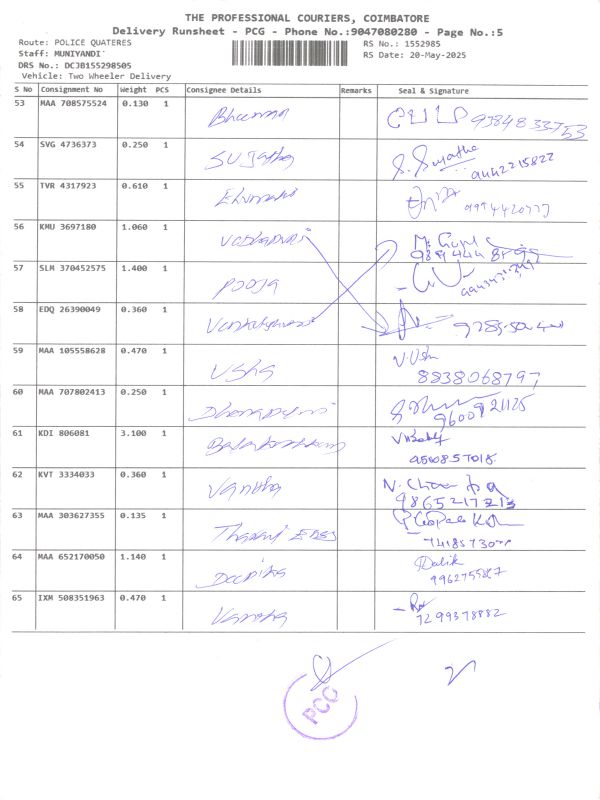 THE PROFESSIONAL COURIERS, COIMBATORE
Delivery Runsheet - PCG - Phone No.:9047080280 - Page No.:5
Route: POLICE QUATERES
RS No.: 1552985
Staff: MUNIYANDI
RS Date: 20-May-2025
DRS No.: DCJB155298505
Vehicle: Two Wheeler Delivery
S No Consignment No Weight PCS Consignee Details Remarks Seal & Signature
53 MAA 708575524 0.130 1 9384833753
54 SVG 4736373 0.250 1 Sujatha S. Sujatha
9442215822
55 TVR 4317923 0.610 1
56 KMU 3697180 1.060 1
57 SLM 370452575 1.400 1 Pooja
58 EDQ 26390049 0.360 1
59 MAA 105558628 0.470 1 Usha V. Usha
8838068797
60 MAA 707802413 0.250 1
9600921125
61 KDI 806081 3.100 1
9500857018
62 KVT 3334033 0.360 1 Vanitha
9865217213
63 MAA 303627355 0.135 1
64 MAA 652170050 1.140 1 Deepika
65 IXM 508351963 0.470 1
7299378882
PCC